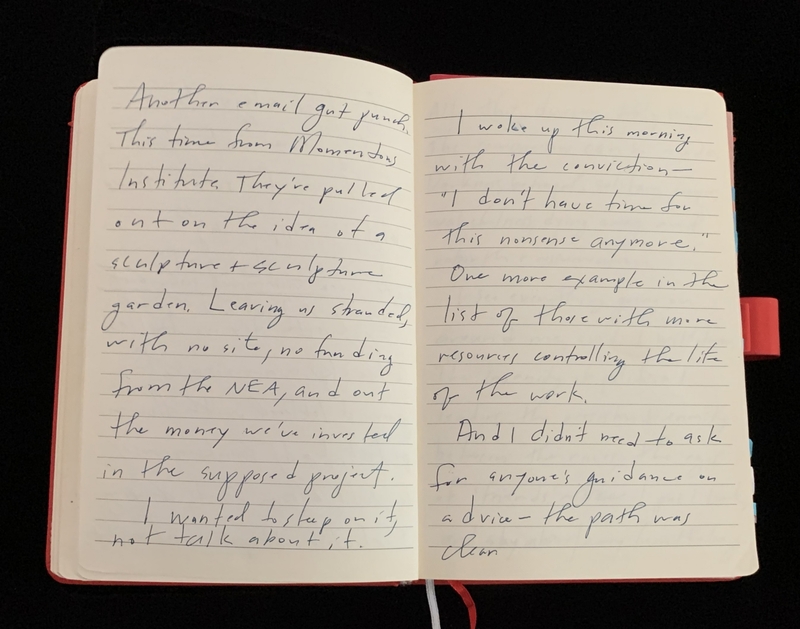 Another email gut punch.
This time from Momentous
Institute. They've pulled
out on the idea of a
sculpture + sculpture
garden. Leaving us stranded,
with no site, no funding
from the NEA, and out
the money we've invested
in the supposed project.
I wanted to sleep on it,
not talk about it.
I woke up this morning
with the conviction—
"I don't have time for
this nonsense anymore."
One more example in the
list of those with more
resources controlling the life
of the work.
And I didn't need to ask
for anyone's guidance on
advice— the path was
clear